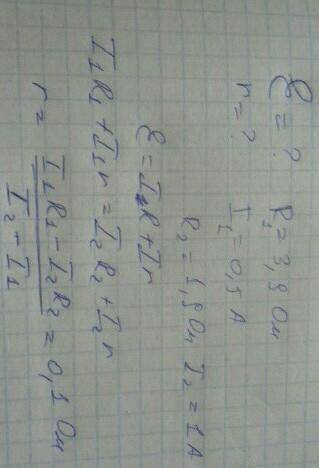 ℰ = ? R₁ = 3,9 Ом
r = ? I₁ = 0,5 А
R₂ = 1,9 Ом I₂ = 1 А
ℰ = IR + Ir
I₁R₁ + I₁r = I₂R₂ + I₂r
r = I₁R₁ − I₂R₂ = 0,1 Ом
I₂ − I₁